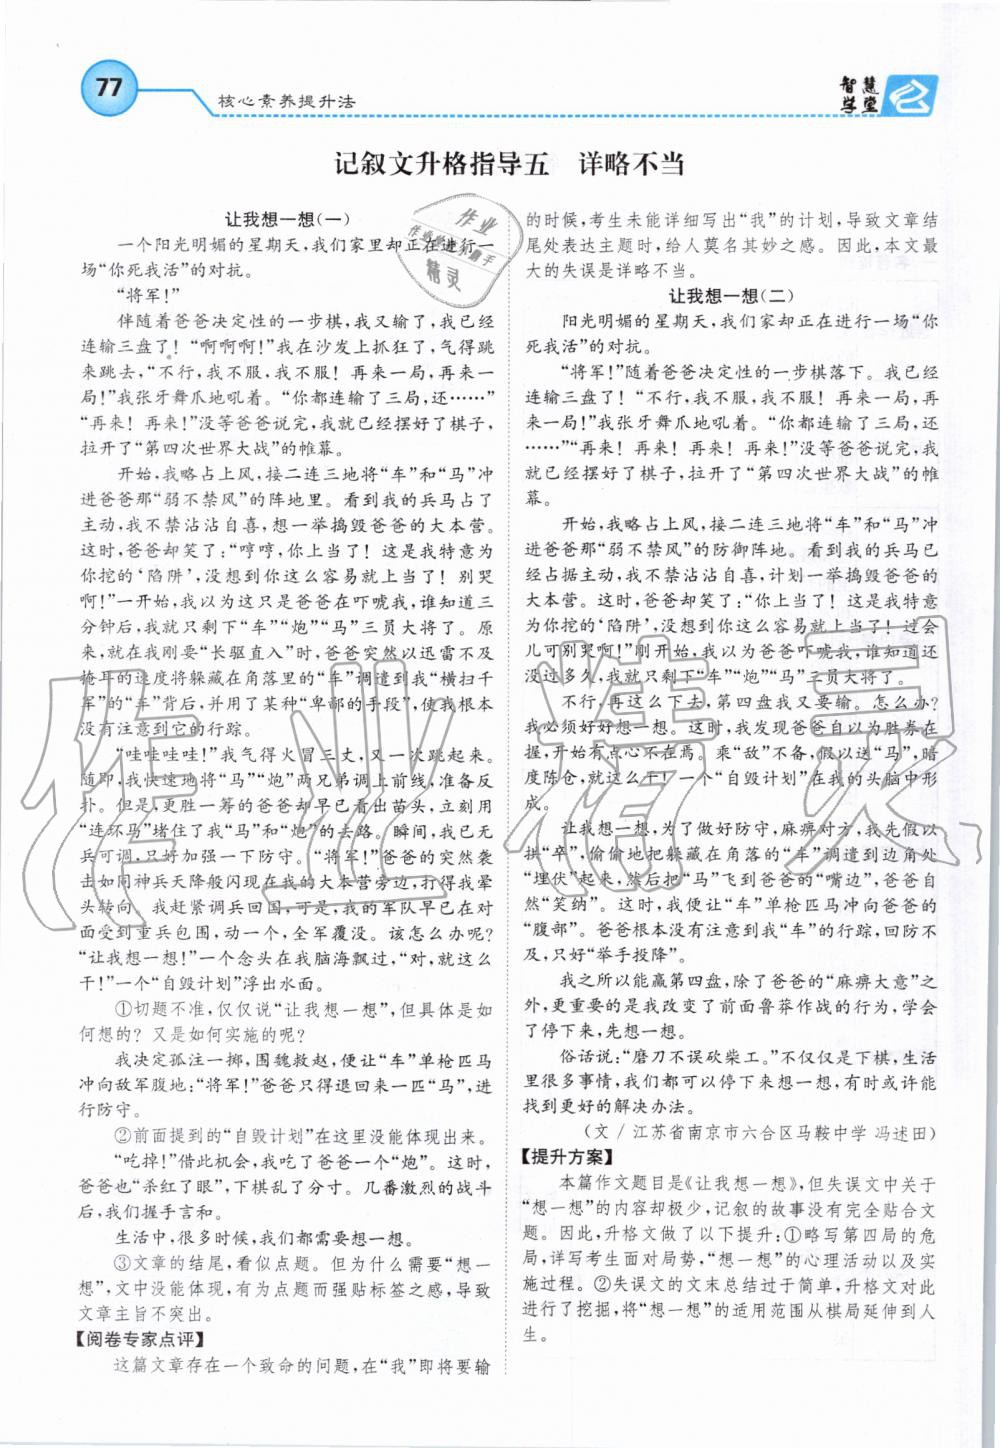 77
核心素养提升法
智慧
学堂
记叙文升格指导五　详略不当
让我想一想(一)
一个阳光明媚的星期天,我们家里却正在进行一
场“你死我活”的对抗。
“将军!”
伴随着爸爸决定性的一步棋,我又输了,我已经
连输三盘了!“啊啊啊!”我在沙发上抓狂了,气得跳
来跳去,“不行,我不服,我不服! 再来一局,再来一
局!”我张牙舞爪地吼着。“你都连输了三局,还……”
“再来! 再来!”没等爸爸说完,我就已经摆好了棋子,
拉开了“第四次世界大战”的帷幕。
开始,我略占上风,接二连三地将“车”和“马”冲
进爸爸那“弱不禁风”的阵地里。看到我的兵马占了
主动,我不禁沾沾自喜,想一举捣毁爸爸的大本营。
这时,爸爸却笑了:“哼哼,你上当了! 这是我特意为
你挖的‘陷阱’,没想到你这么容易就上当了! 别哭
啊!”一开始,我以为这只是爸爸在吓唬我,谁知道三
分钟后,我就只剩下“车”“炮”“马”三员大将了。原
来,就在我刚要“长驱直入”时,爸爸突然以迅雷不及
掩耳的速度将躲藏在角落里的“车”调遣到我“横扫千
军”的“车”背后,并用了某种“卑鄙的手段”,使我根本
没有注意到它的行踪。
“哇哇哇哇!”我气得火冒三丈,又一次跳起来。
随即,我快速地将“马”“炮”两兄弟调上前线,准备反
扑。但是,更胜一筹的爸爸却早已看出苗头,立刻用
“连环马”堵住了我“马”和“炮”的去路。瞬间,我已无
兵可调,只好加强一下防守。“将军!”爸爸的突然袭
击如同神兵天降般闪现在我的大本营旁边,打得我晕
头转向。我赶紧调兵回国,可是,我的军队早已在对
面受到重兵包围,动一个,全军覆没。该怎么办呢?
“让我想一想!”一个念头在我脑海飘过,“对,就这么
干!”一个“自毁计划”浮出水面。
①切题不准,仅仅说“让我想一想”,但具体是如
何想的? 又是如何实施的呢?
我决定孤注一掷,围魏救赵,便让“车”单枪匹马
冲向敌军腹地:“将军!”爸爸只得退回来一匹“马”,进
行防守。
②前面提到的“自毁计划”在这里没能体现出来。
“吃掉!”借此机会,我吃了爸爸一个“炮”。这时,
爸爸也“杀红了眼”,下棋乱了分寸。几番激烈的战斗
后,我们握手言和。
生活中,很多时候,我们都需要想一想。
③文章的结尾,看似点题。但为什么需要“想一
想”,文中没能体现,有为点题而强贴标签之感,导致
文章主旨不突出。
【阅卷专家点评】
这篇文章存在一个致命的问题,在“我”即将要输
的时候,考生未能详细写出“我”的计划,导致文章结
尾处表达主题时,给人莫名其妙之感。因此,本文最
大的失误是详略不当。
让我想一想(二)
阳光明媚的星期天,我们家却正在进行一场“你
死我活”的对抗。
“将军!”随着爸爸决定性的一步棋落下。我已经
连输三盘了!“不行,我不服,我不服! 再来一局,再来
一局!”我张牙舞爪地吼着。“你都连输了三局,
还……”“再来! 再来!”没等爸爸说完,我
就已经摆好了棋子,拉开了“第四次世界大战”的帷
幕。
开始,我略占上风,接二连三地将“车”和“马”冲
进爸爸那“弱不禁风”的防御阵地。看到我的兵马已
经占据主动,我不禁沾沾自喜,计划一举捣毁爸爸的
大本营。这时,爸爸却笑了:“你上当了! 这是我特意
为你挖的‘陷阱’,没想到你这么容易就上当了! 过会
儿可别哭啊!”刚开始,我以为爸爸吓唬我,谁知道还
没过多久,我就只剩下“车”“炮”“马”三员大将了。
不行,再这么下去,第四盘我又要输。怎么办?
我必须好好想一想。这时,我发现爸爸自以为胜券在
握,开始有点心不在焉。乘“敌”不备,假以送“马”,暗
度陈仓,就这么干! 一个“自毁计划”在我的头脑中形
成。
让我想一想,为了做好防守,麻痹对方,我先假以
拱“卒”,偷偷地把躲藏在角落的“车”调遣到边角处
“埋伏”起来,然后把“马”飞到爸爸的“嘴边”,爸爸自
然“笑纳”。这时,我便让“车”单枪匹马冲向爸爸的
“腹部”。爸爸根本没有注意到我“车”的行踪,回防不
及,只好“举手投降”。
我之所以能赢第四盘,除了爸爸的“麻痹大意”之
外,更重要的是我改变了前面鲁莽作战的行为,学会
了停下来,先想一想。
俗话说:“磨刀不误砍柴工。”不仅仅是下棋,生活
里很多事情,我们都可以停下来想一想,有时或许能
找到更好的解决办法。
(文/江苏省南京市六合区马鞍中学 冯述田)
【提升方案】
本篇作文题目是《让我想一想》,但失误文中关于
“想一想”的内容却极少,记叙的故事没有完全贴合文
题。因此,升格文做了以下提升:①略写第四局的危
局,详写考生面对局势,“想一想”的心理活动以及实
施过程。②失误文的文末总结过于简单,升格文对此
进行了挖掘,将“想一想”的适用范围从棋局延伸到人
生。
作业精灵